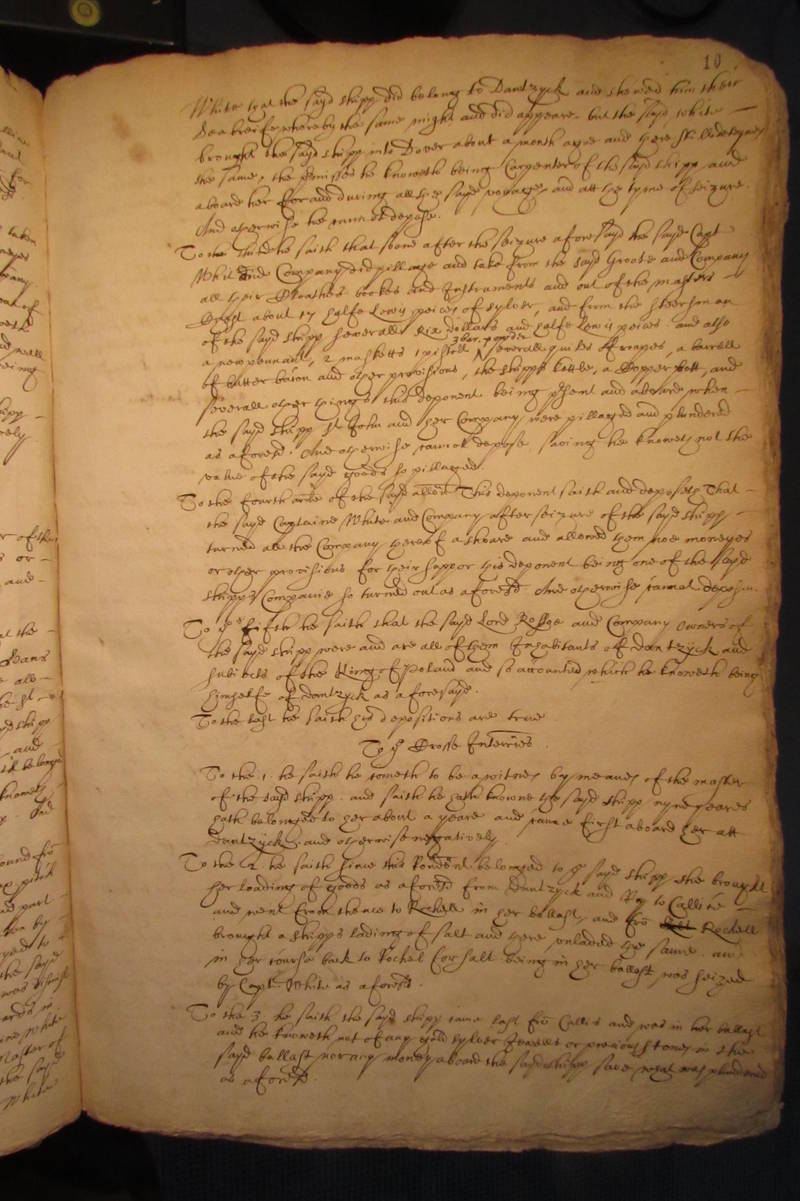 10
White that the sayd shipp did belong to Dantzyck and shewed him their
Sea breife whereby the same might and did appeare but the sayd White
brought the sayd shipp into Dover about a month agoe and there still deteynes
the same, the premisses he knoweth being Carpenter of the sayd shipp and
aboard her for and during all the sayd voyage and att the tyme of seizure.
And otherwise he cannot depose.
To the third he saith that soone after the seizure aforesayd the sayd Capt
White and Company did pillage and take from the sayd Groote and Company
all their Cloathes bookes and Instruments and out of the masters
Chest about 17 halfe Lewis peices of sylver, and from the steersman
of the sayd shipp severall Rix dollars and halfe Lewis peices and also
3 bar. powder
a new pennant, 2 musketts 1 pistoll severall quiles of ropes, a barrell
of butter bacon and other provisions, the shipps kettle, a Copper pott, and
severall other things this deponent being present and aboard when
the sayd shipp St John and her Company were pillaged and plundered
as aforesd. And otherwise cannot depose saving he knowes not the
value of the sayd goods so pillaged.
To the fourth arle of the sayd allon This deponent saith and deposeth That
the sayd Captaine White and Company after seizure of the sayd shipp
turned all the Company thereof a shoare and allowed them noe moneyes
or other provisions for their support this deponent being one of the sayd
shipps Companie so turned out as aforesd And otherwise cannot depose.
To the fifth he saith that the sayd Lord and Company Owners of
the sayd shipp were and are all of them Inhabitants of Dantzyck and
subiects of the King of Poland and so accounted which he knoweth being
himselfe of Dantzyck as aforesayd.
To the last he saith his depositions are true
To ye Crosse Interries.
To the 1. he saith he cometh to be a witnes by meanes of the master
of the sayd shipp. and saith he hath knowne the sayd shipp nyne yeares
hath belonged to her about a yeare and came first aboard her att
Dantzyck, and otherwise negatively.
To the 2 he saith since this Rondent belonged to ye sayd shipp she brought
her loading of goods as aforesd from Dantzyck and to Callice
and went from thence to Rochell in her ballast, and fro Rochell
brought a shipps lading of salt and there unladed the same. and
in her course back to Rochel for salt being in her ballast was seized
by Capt White as aforesd.
To the 3. he saith the sayd shipp came last fro Callis and was in her ballast
and he knoweth not of any gold sylver Jewells or precious stones in the
sayd ballast nor any money aboard the sayd shipp save what was plundered
as aforesd.